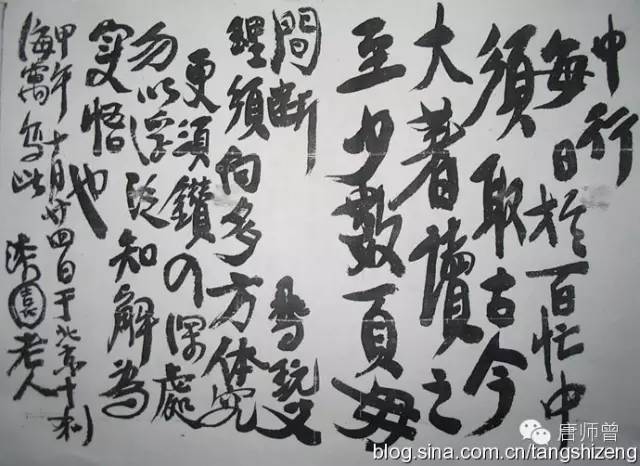 中行
每日於百忙中
須取古今
大著讀之
至少數頁毋
間斷 尋玩义
理須向多方体究
更須鑽入深處
勿以浮泛知解為
实悟也
甲午十月廿四日于北京十刹
海寓写此 漆園老人
唐师曾
blog.sina.com.cn/tangshizeng